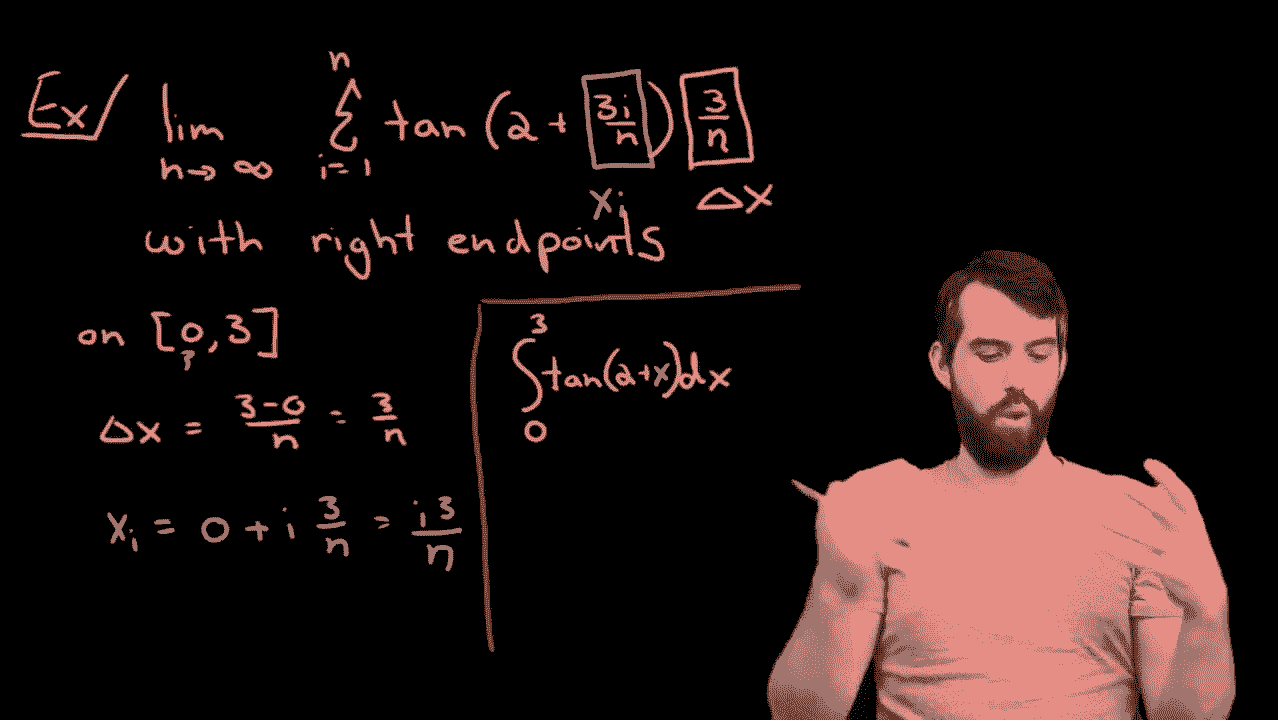 Ex/ lim n→∞ n Σ i=1 tan(2 + 3i/n) 3/n
xi Δx
with right endpoints
on [0,3]
?
Δx = 3-0/n = 3/n
xi = 0 + i 3/n = i3/n
∫ 3 0 tan(2+x)dx